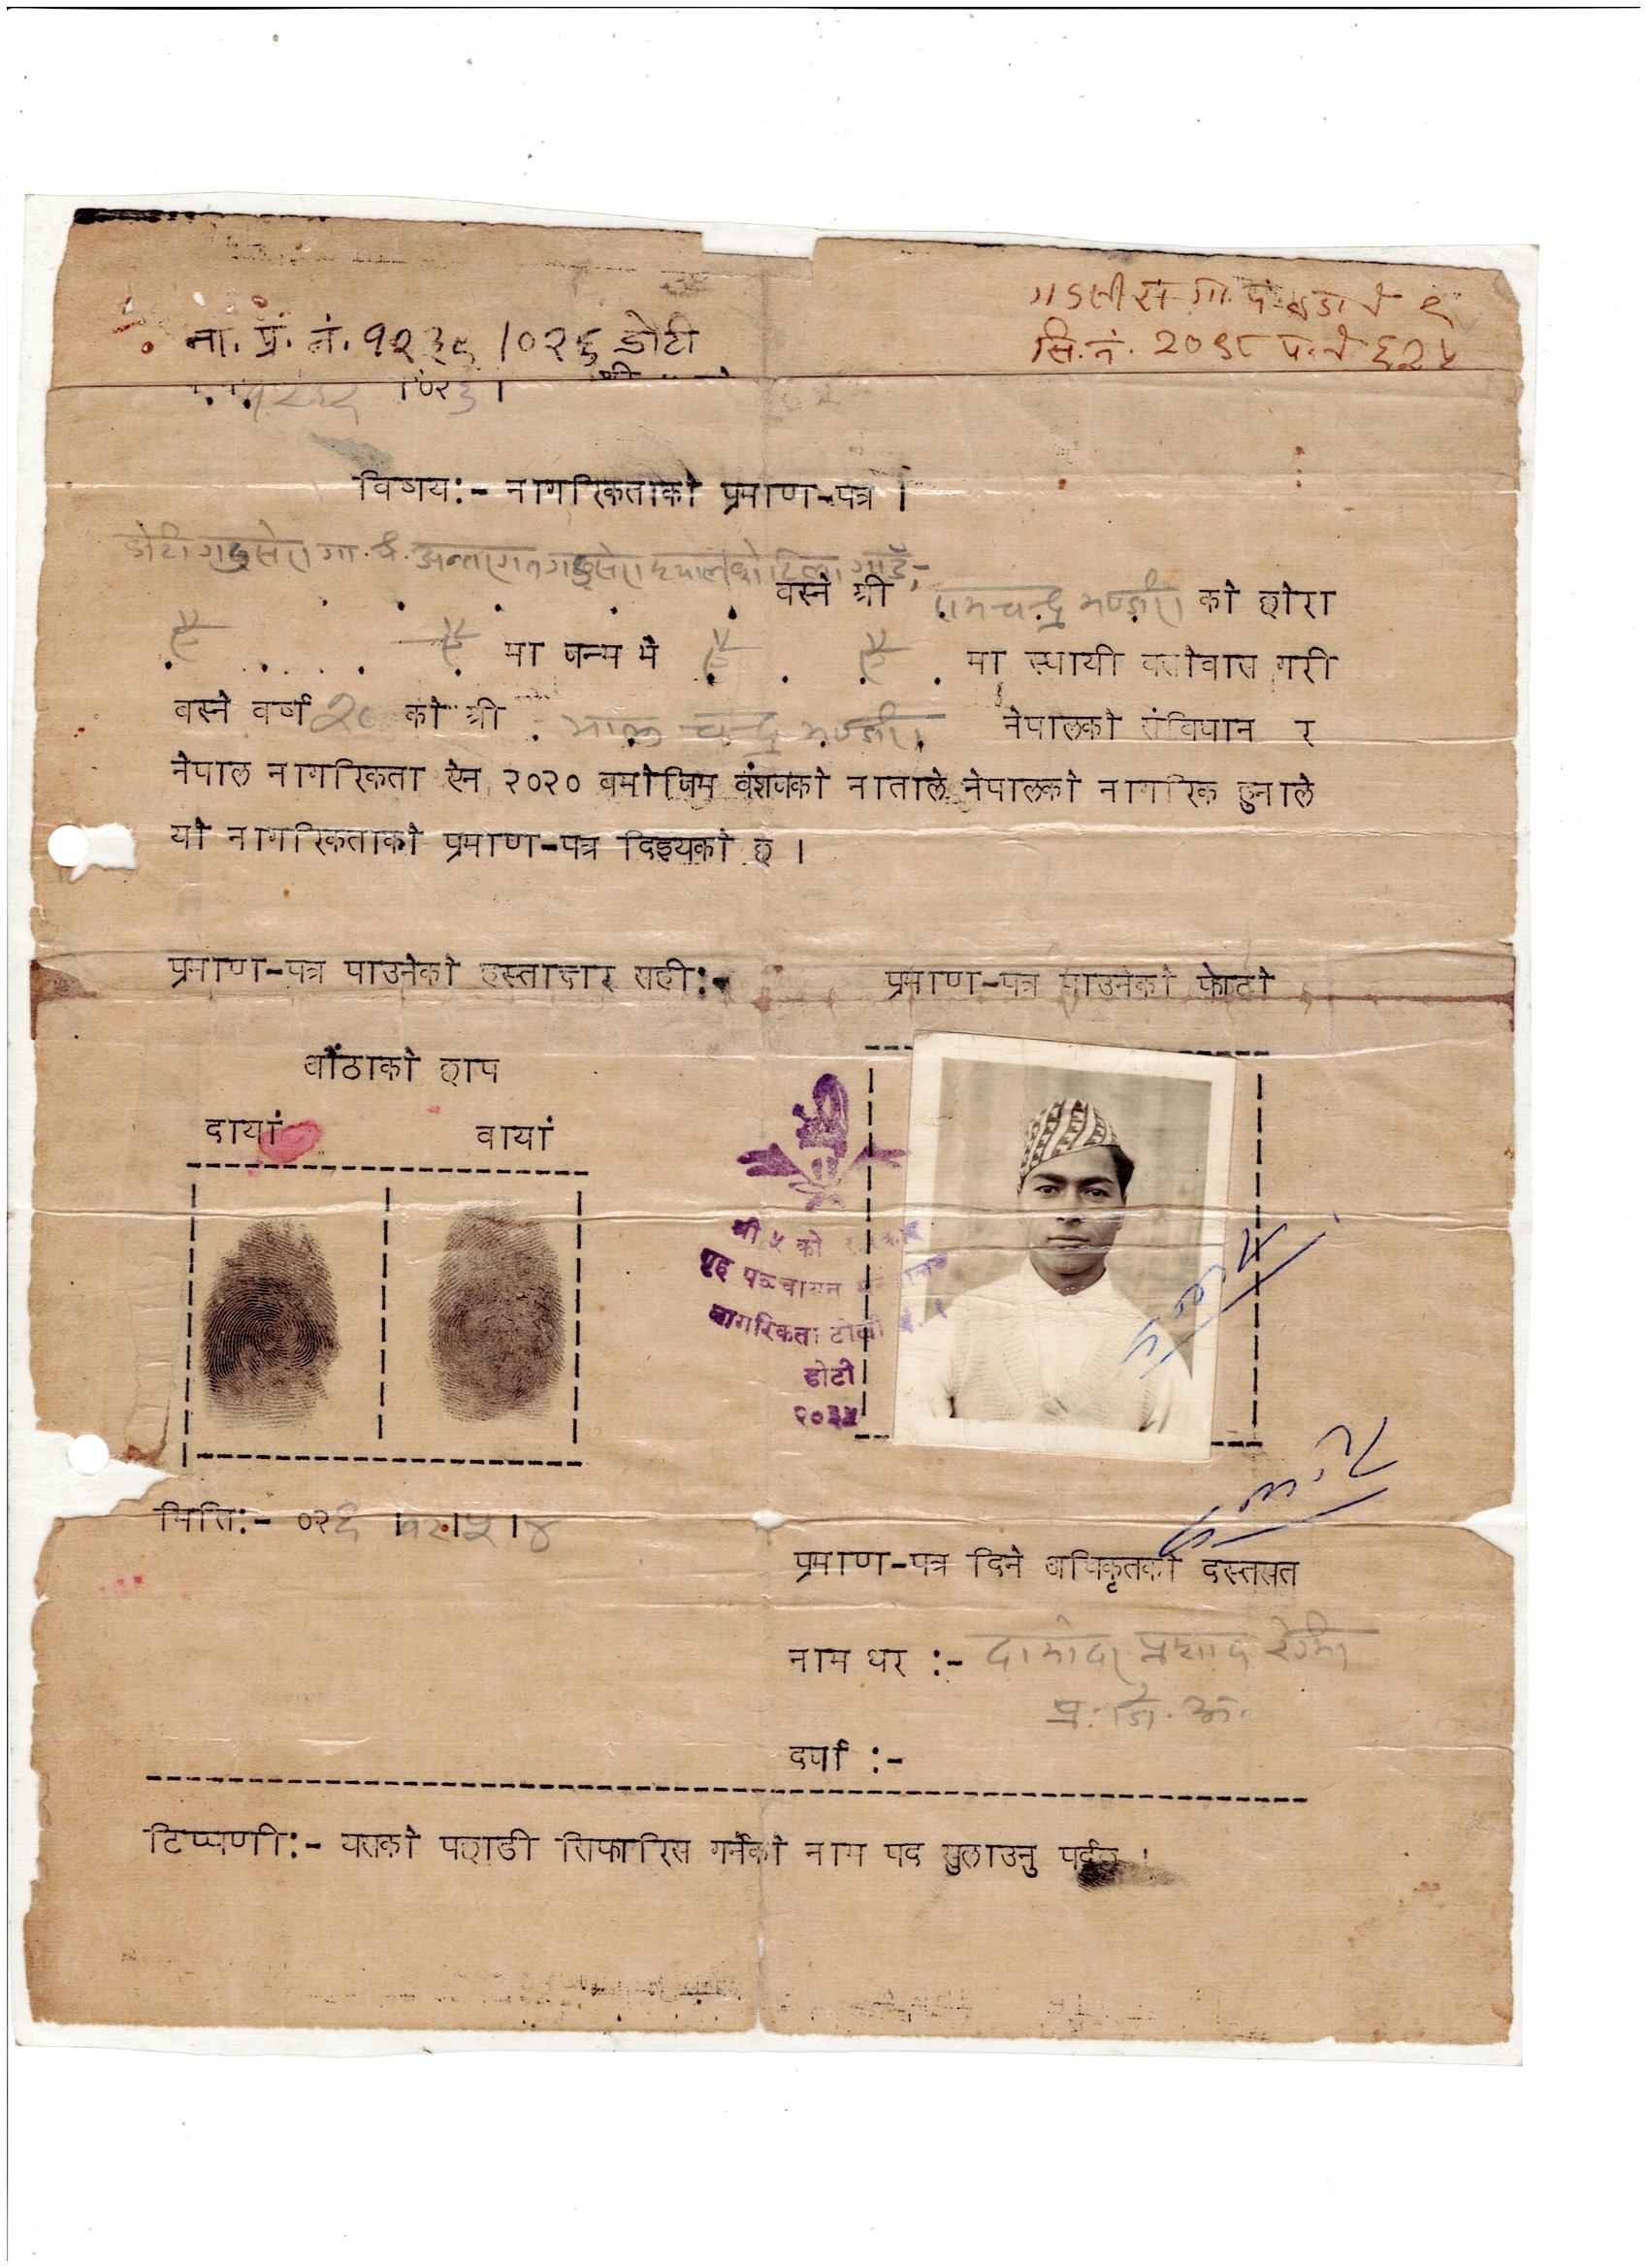 ना. प्र. नं. १२३९ /०२६ डोटी
सि. नं. २०९८ प. नं ६२५
।०२६।
विषय:- नागरिकताको प्रमाण-पत्र ।
डोटी गा. पं. अन्तरगत
वस्ने श्री रामचन्द्र भण्डारी को छोरा
ऐ ऐ मा जन्म भे ऐ ऐ मा स्थायी वसोवास गरी
वस्ने वर्ष २८ को श्री चन्द्र भण्डारी नेपालको संविधान र
नेपाल नागरिकता ऐन २०२० वमोजिम वंशजको नाताले नेपालको नागरिक हुनाले
यो नागरिकताको प्रमाण-पत्र दिइयको छ ।
प्रमाण-पत्र पाउनेको हस्ताक्षर सही:-
प्रमाण-पत्र पाउनेको फोटो
औंठाको छाप
दायां वायां
श्री ५ को सरकार
गृह पञ्चायत मन्त्रालय
नागरिकता टोली नं. १
डोटी
मिति:- ०२६
प्रमाण-पत्र दिने अधिकृतको दस्तखत
नाम थर :- दामोदर प्रशाद रेग्मी
प्र. जि. अ.
दर्जा :-
टिप्पणी:- यसको पछाडी सिफारिस गर्नेको नाम पद खुलाउनु पर्दछ ।